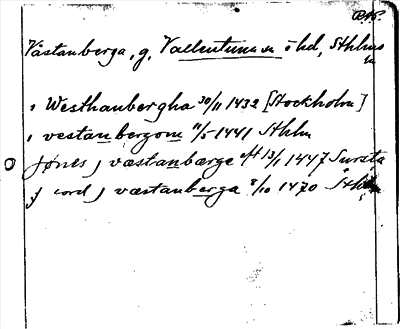 RK.
Västanberga, g, Vallentuna sn o hd, Sthlms
ln
i Westhanbergha 30/11 1432 [Stockholm]
i vestanbergom 11/5 1441 Sthlm
jønes j væstanbærge aft 13/1 1447 Sursta
j iord j væstanberga 8/10 1470 Sthlm